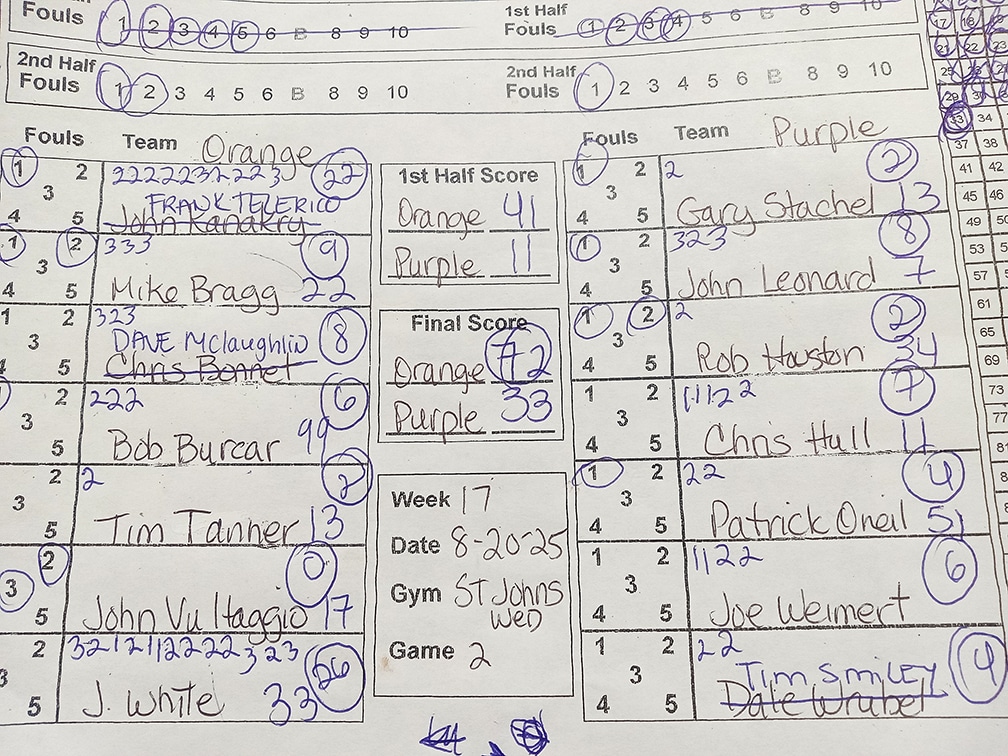 Fouls 1 2 3 4 5 6 B 8 9 10
1st Half
Fouls 1 2 3 4 5 6 B 8 9 10
2nd Half
Fouls 1 2 3 4 5 6 B 8 9 10
2nd Half
Fouls 1 2 3 4 5 6 B 8 9 10
Fouls Team Orange
1 2 3 4 5
22
FRANK TELERICO
John Kanakry
1 2 3 4 5
333 9
Mike Bragg 22
1 2 3 4 5
323
DAVE Mclaughlin 8
Chris Bonnet
2 3 5
222 6
Bob Burcar 99
2 3 5
2 2
Tim Tanner 13
2 3 5
0
John Vultaggio 17
2 3 5
321211222 323 26
J. White 33
1st Half Score
Orange 41
Purple 11
Final Score
Orange 72
Purple 33
Week 17
Date 8-20-25
Gym ST Johns
WED
Game 2
Fouls Team Purple
1 2 3 4 5
2 2
Gary Stachel 13
1 2 3 4 5
323 8
John Leonard 7
1 2 3 4 5
2 2
Rob Houston 34
1 2 3 4 5
11122 7
Chris Hull 11
1 2 3 4 5
22 4
Patrick Oneil 51
1 2 3 4 5
1122 6
Joe Weimert
1 2 3 4 5
22 4
Tim SmiLEY
Dale Wrubel
33 34
37 38
41 42
45 46
49 50
53
57
61
65
69
73
77